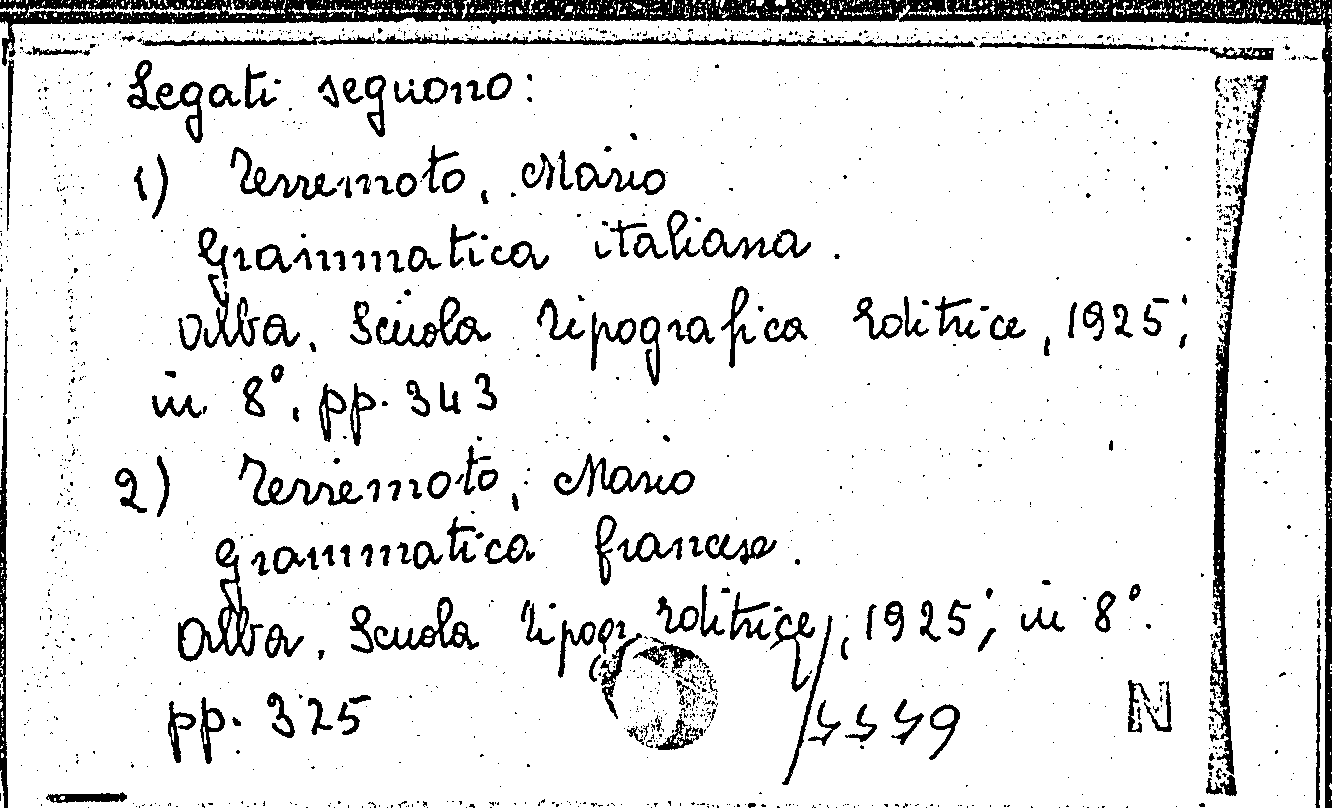 Legati seguono:
1) Terremoto, Mario
Grammatica italiana.
Alba, Scuola Tipografica Editrice, 1925;
in 8°, pp. 343
2) Terremoto, Mario
Grammatica francese.
Alba, Scuola Tipogr. Editrice, 1925; in 8°.
pp. 325
N